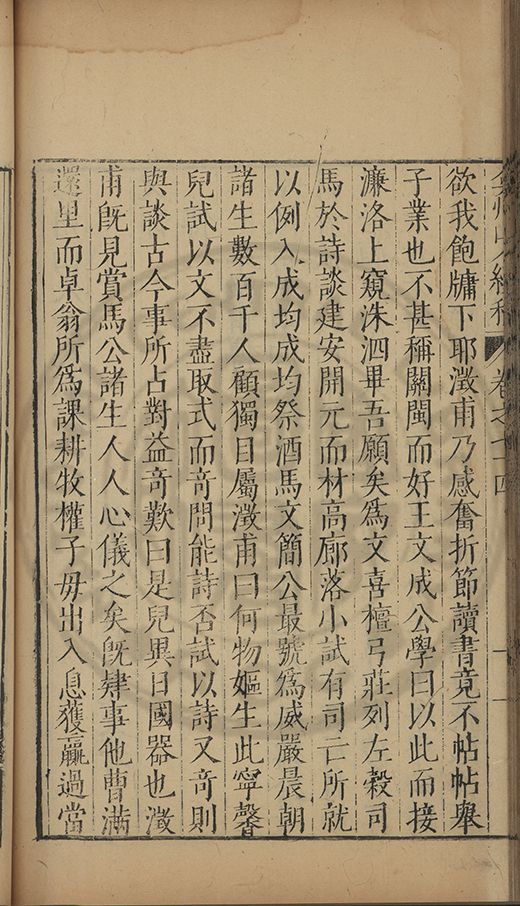 欲我飽牖下耶瀓甫乃感奮折節讀書竟不帖帖舉
子業也不甚稱關閩而好王文成公學曰以此而接
濂洛上窺洙泗畢吾願矣爲文喜檀弓莊列左穀司
馬於詩談建安開元而材高廓落小試有司亡所就
以例入成均成均祭酒馬文簡公最號爲威嚴晨朝
諸生數百千人顧獨目屬瀓甫曰何物嫗生此寧馨
兒試以文不盡取式而奇問能詩否試以詩又奇則
與談古今事所占對益奇歎曰是兒異日國器也瀓
甫旣見賞馬公諸生人人心儀之矣旣肄事他曹滿
還里而卓翁所爲課耕牧權子毋出入息獲羸過當